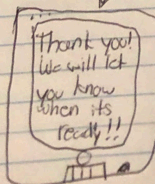 Thank you!
We will let
you know
when its
ready!!